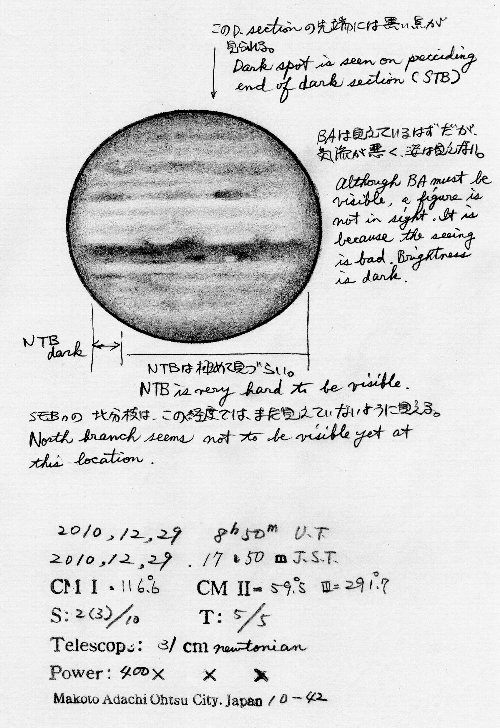 このD.sectionの先端には黒い点が
見られる。
Dark spot is seen on preciding
end of dark section (STB)
BAは見えているはずだが、
気流が悪く、姿は見えない。
Although BA must be
visible, a figure is
not in sight. It is
because the seeing
is bad. Brightness
is dark.
NTB
dark
NTBは極めて見づらい。
NTB is very hard to be visible.
SEBnの北分枝は、この経度では、まだ見えていないように見える。
North branch seems not to be visible yet at
this location.
2010,12,29 8h50m U.T.
2010,12,29. 17 50 m J.S.T.
CM I = 116.°6 CM II= 59.°5 III=291.°7
S: 2(3)/10 T: 5/5
Telescope: 31 cm newtonian
Power: 400× × ×
Makoto Adachi Ohtsu City. Japan 10-42